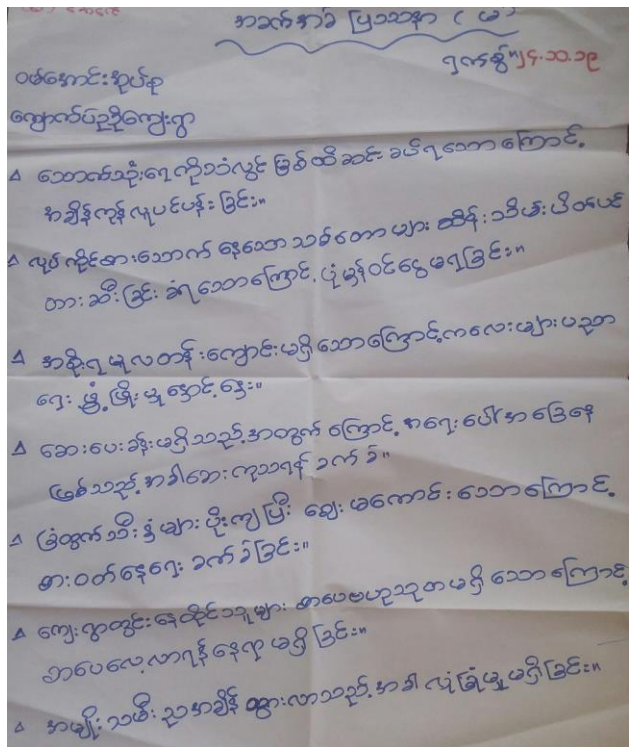 အခက်အခဲ ပြဿနာ ( မ )
ရက်စွဲ။ ၂၄.၁၀.၁၉
ဝမ်အောင်းအုပ်စု
ကျောက်ပြဒိုကျေးရွာ
∆ သောက်သုံးရေကိုသံလွင် မြစ်ထိဆင်း ခပ်ရသောကြောင့်
အချိန်ကုန်လူပင်ပန်းခြင်း။
∆ လုပ်ကိုင်စားသောက် နေသော သစ်တောများ ထိန်းသိမ်းပိတ်ပင်
တားဆီးခြင်း ခံရသောကြောင့် ပုံမှန်ဝင်ငွေမရခြင်း။
∆ အစိုးရမူလတန်းကျောင်းမရှိသောကြောင့်ကလေးများပညာ
ရေး ဖွံ့ဖြိုးမှုနှောင့်နှေး။
∆ ဆေးပေးခန်းမရှိသည့်အတွက်ကြောင့် အရေးပေါ်အခြေနေ
ဖြစ်သည့်အခါဆေးကုသရန် ခက်ခဲ။
∆ ခြံထွက်သီးနှံများ ပိုးကျပြီး ဈေးမကောင်းသောကြောင့်
စားဝတ်နေရေး ခက်ခဲခြင်း။
∆ ကျေးရွာတွင်းနေထိုင်သူများ စာပေဗဟုသုတမရှိသောကြောင့်
စာပေလေ့လာရန်နေရာမရှိခြင်း။
∆ အမျိုးသမီးညအချိန် သွားလာသည့်အခါ လုံခြုံမှုမရှိခြင်း။